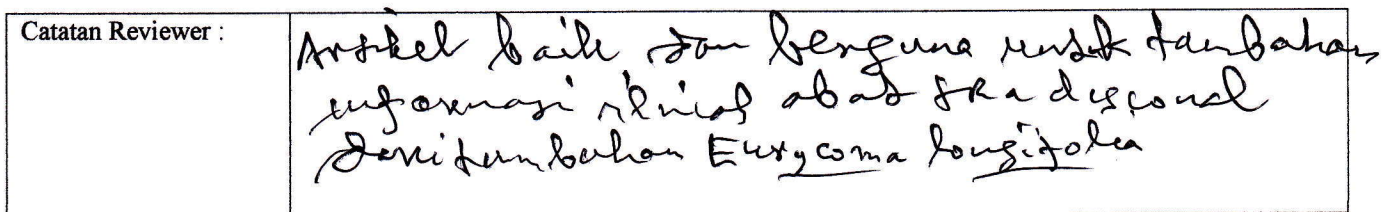 Catatan Reviewer :
Artikel baik dan berguna untuk tambahan
informasi ilmiah obat tradisional
dari tumbuhan Eurycoma longifolia